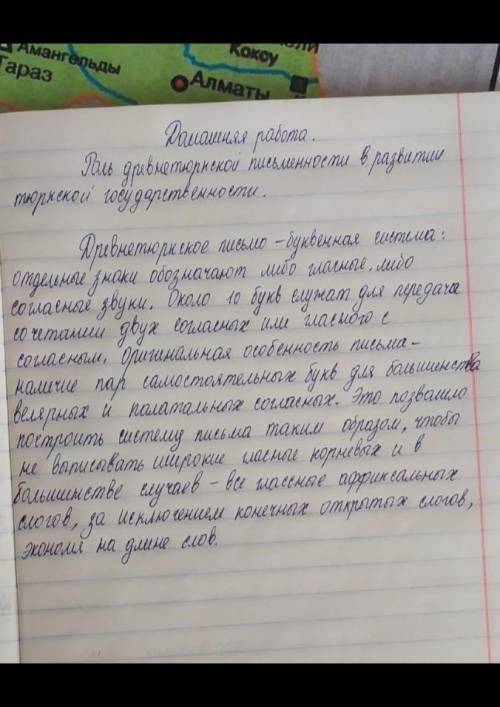 Амангельды
Тараз
Коксу
Алматы
Домашняя работа.
Роль древнетюркской письменности в развитии
тюркской государственности.
Древнетюркское письмо - буквенная система:
отдельные знаки обозначают либо гласные, либо
согласные звуки. Около 10 букв служат для передача
сочетании двух согласных или гласного с
согласным. Оригинальная особенность письма-
наличие пар самостоятельных букв для большинства
велярных и палатальных согласных. Это позволило
построить систему письма таким образом, чтобы
не выписовать широкие гласные корневых и в
большинстве случаев - все глассные аффиксальных
слогов, за исключением конечных открытых слогов,
экономя на длине слов.